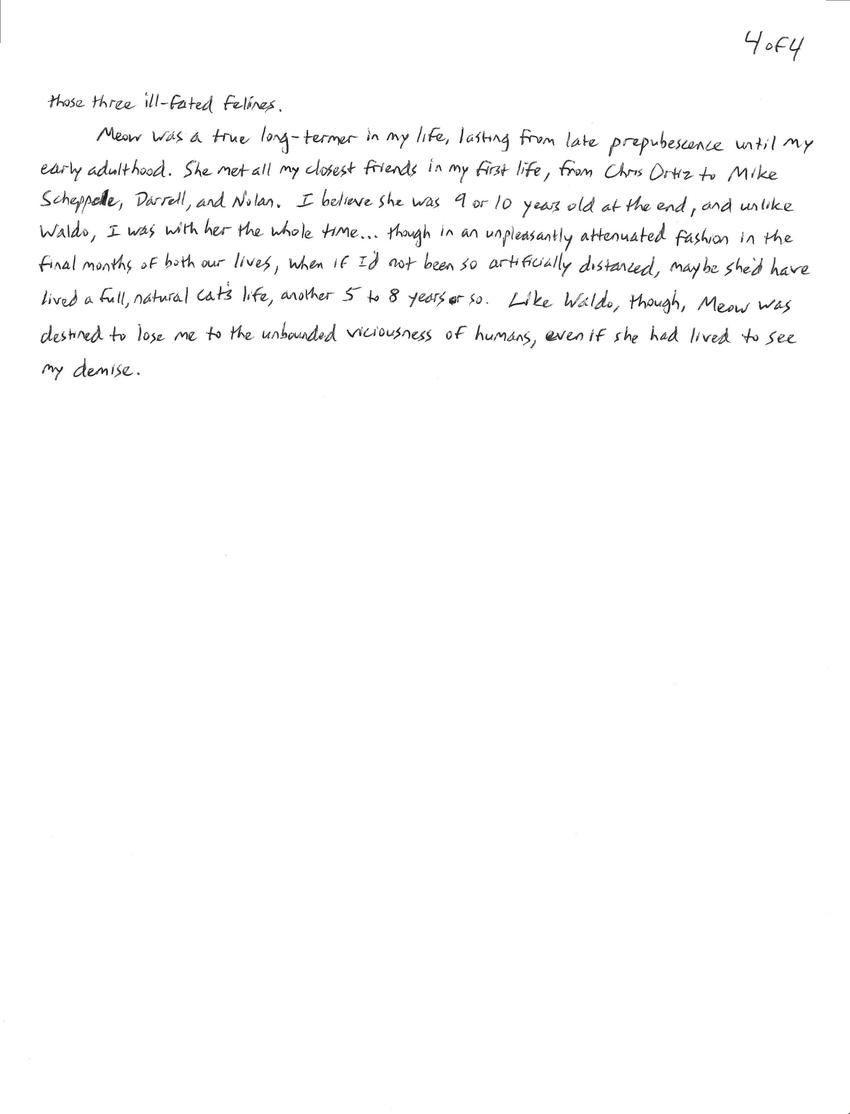 4 of 4
those three ill-fated felines.
Meow was a true long-termer in my life, lasting from late prepubescence until my
early adulthood. She met all my closest friends in my first life, from Chris Ortiz to Mike
Scheppele, Darrell, and Nolan. I believe she was 9 or 10 years old at the end, and unlike
Waldo, I was with her the whole time... though in an unpleasantly attenuated fashion in the
final months of both our lives, when if I'd not been so artificially distanced, maybe she'd have
lived a full, natural cat's life, another 5 to 8 years or so. Like Waldo, though, Meow was
destined to lose me to the unbounded viciousness of humans, even if she had lived to see
my demise.